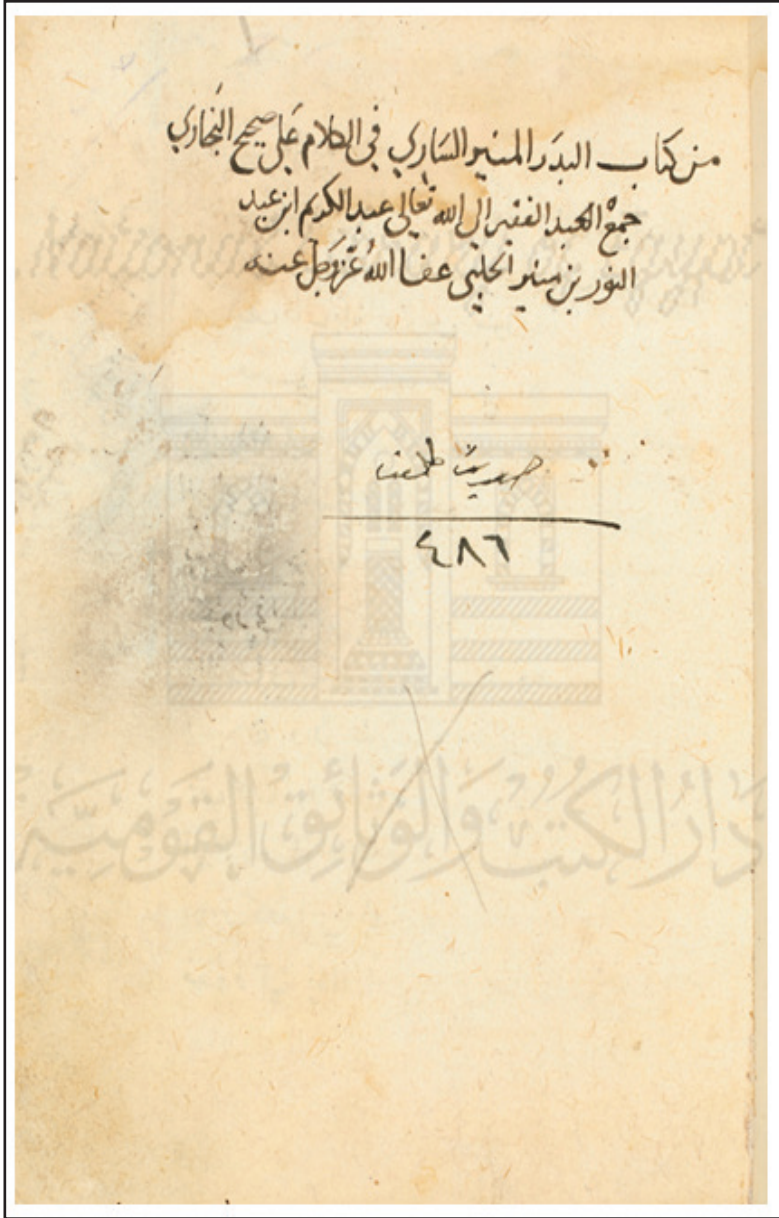 من كتاب البدر المنير الساري في الكلام على صحيح البخاري
جمع العبد الفقير الى الله تعالى عبد الكريم ابن عبد
النور بن منير الحلبي عفا الله عز وجل عنه
حديث طلعت
٤٨٦
دار الكتب والوثائق القومية